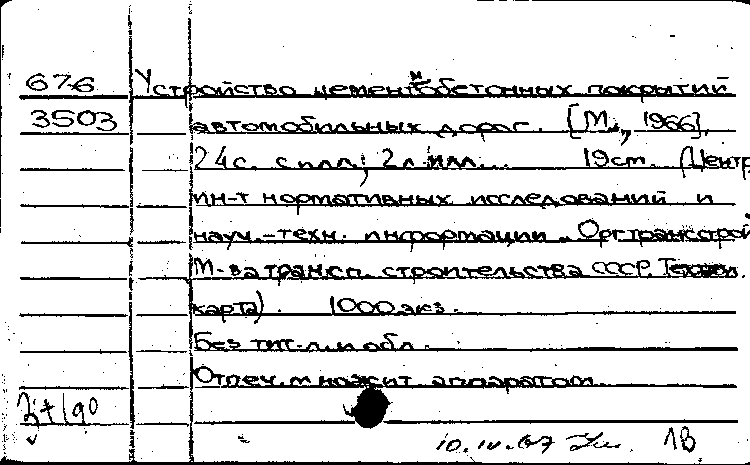 676 Устройство цементобетонных покрытий
3503 автомобильных дорог. [М., 1966].
24 с. с илл.; 2 л. илл. 19 см. (Центр.
ин-т нормативных исследований и
науч.-техн. информации „Оргтрансстрой
М-ва трансп. строительства СССР. Технол.
карта). 1000 экз.
Без тит. л. и обл.
Отпеч. множит. аппаратом
10.IV.67 1В